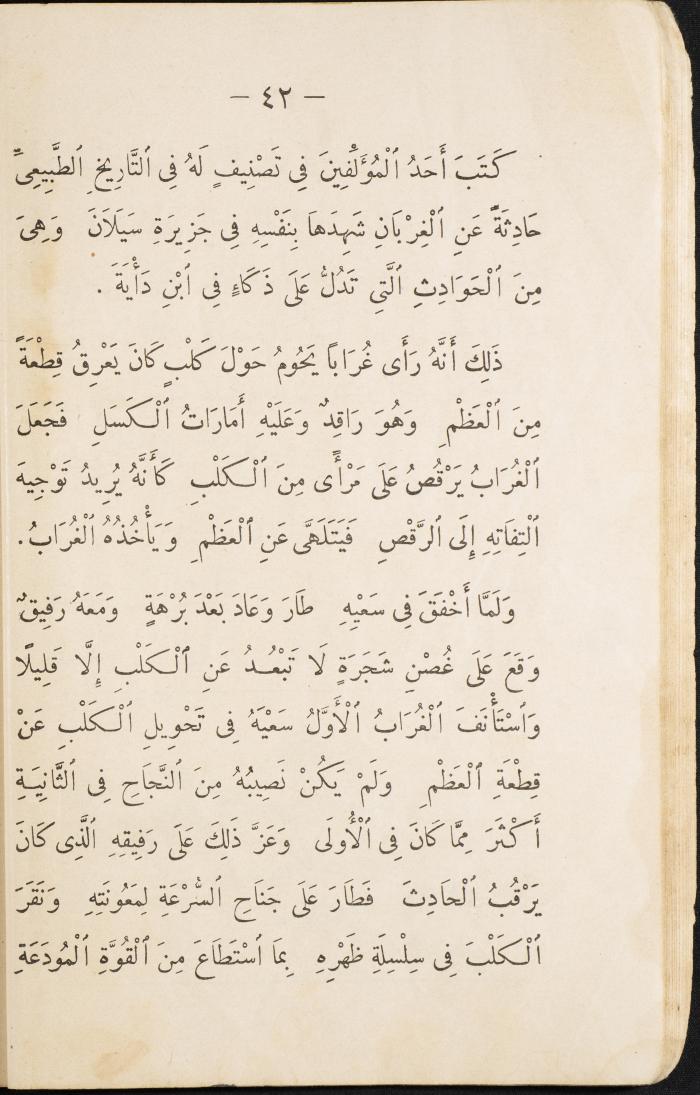 — ٤٢ —
كَتَبَ أَحَدُ ٱلْمُؤَلِّفِينَ فِى تَصْنِيفٍ لَهُ فِى ٱلتَّارِيخِ ٱلطَّبِيعِىِّ
حَادِثَةً عَنِ ٱلْغِرْبَانِ شَهِدَهَا بِنَفْسِهِ فِى جَزِيرَةِ سَيَلَانَ وَهِىَ
مِنَ ٱلْحَوَادِثِ ٱلَّتِى تَدُلُّ عَلَى ذَكَاءٍ فِى ٱبْنِ دَأْيَةَ .
ذَلِكَ أَنَّهُ رَأَى غُرَابًا يَحُومُ حَوْلَ كَلْبٍ كَانَ يَعْرِقُ قِطْعَةً
مِنَ ٱلْعَظْمِ وَهُوَ رَاقِدٌ وَعَلَيْهِ أَمَارَاتُ ٱلْكَسَلِ فَجَعَلَ
ٱلْغُرَابُ يَرْقُصُ عَلَى مَرْأًى مِنَ ٱلْكَلْبِ كَأَنَّهُ يُرِيدُ تَوْجِيهَ
ٱلْتِفَاتِهِ إِلَى ٱلرَّقْصِ فَيَتَلَهَّى عَنِ ٱلْعَظْمِ وَيَأْخُذُهُ ٱلْغُرَابُ.
وَلَمَّا أَخْفَقَ فِى سَعْيِهِ طَارَ وَعَادَ بَعْدَ بُرْهَةٍ وَمَعَهُ رَفِيقٌ
وَقَعَ عَلَى غُصْنِ شَجَرَةٍ لَا تَبْعُدُ عَنِ ٱلْكَلْبِ إِلَّا قَلِيلًا
وَٱسْتَأْنَفَ ٱلْغُرَابُ ٱلْأَوَّلُ سَعْيَهُ فِى تَحْوِيلِ ٱلْكَلْبِ عَنْ
قِطْعَةِ ٱلْعَظْمِ وَلَمْ يَكُنْ نَصِيبُهُ مِنَ ٱلنَّجَاحِ فِى ٱلثَّانِيَةِ
أَكْثَرَ مِمَّا كَانَ فِى ٱلْأُولَى وَعَزَّ ذَلِكَ عَلَى رَفِيقِهِ ٱلَّذِى كَانَ
يَرْقُبُ ٱلْحَادِثَ فَطَارَ عَلَى جَنَاحِ ٱلسُّرْعَةِ لِمَعُونَتِهِ وَنَقَرَ
ٱلْكَلْبَ فِى سِلْسِلَةِ ظَهْرِهِ بِمَا ٱسْتَطَاعَ مِنَ ٱلْقُوَّةِ ٱلْمُودَعَةِ